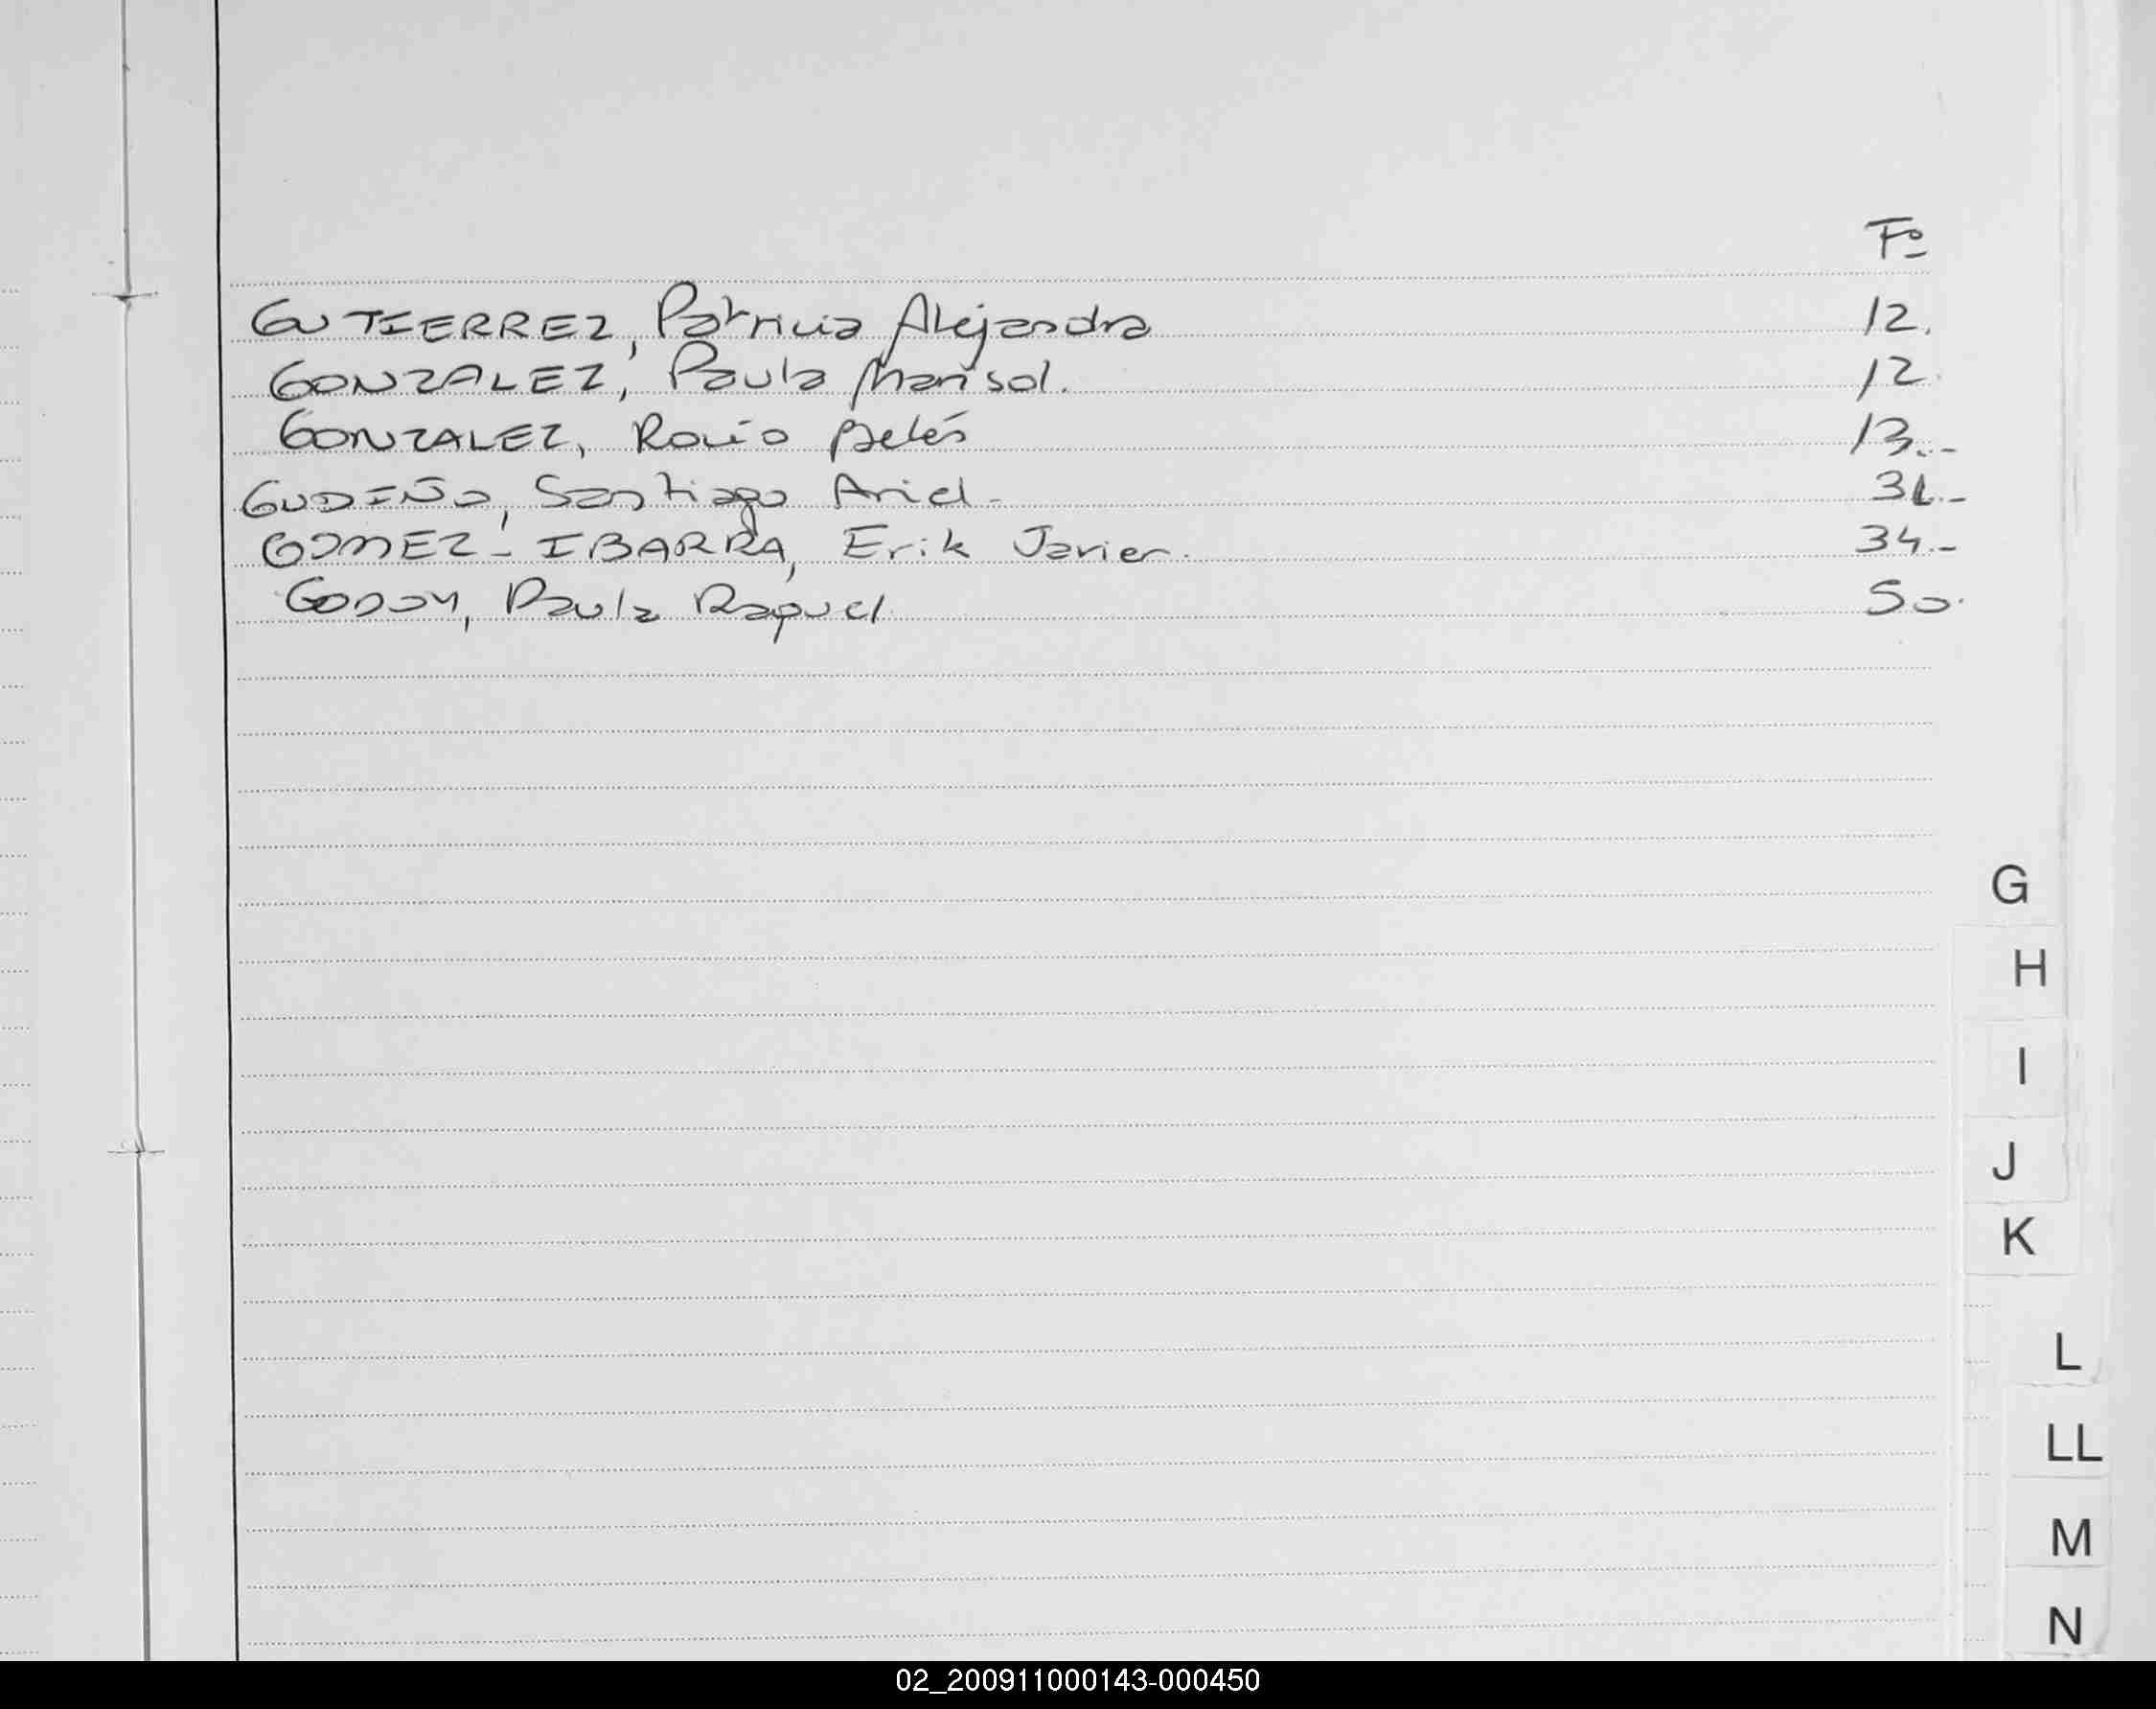 Fº
GUTIERREZ, Patricia Alejandra 12.
GONZALEZ, Paula Marisol. 12.
GONZALEZ, Rocío Belén 13.-
GUDIÑO, Santiago Ariel.- 31.-
GOMEZ-IBARRA, Erik Javier. 34.-
GODOY, Paula Raquel 50.
G
H
I
J
K
L
LL
M
N
02_200911000143-000450